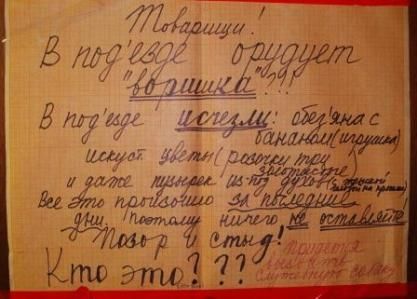 Товарищи!
В под'езде орудует
"воришка"???!
В под'езде исчезли: обез'яна с
бананом (игрушка)
искуст цветы (розочку три
золотистые
и даже пузырек из-под духов
Все это произошло за последние
дни. Поэтому ничего не оставляйте!
Позор и стыд!
Кто это???
придется
вызвать
служебную собаку